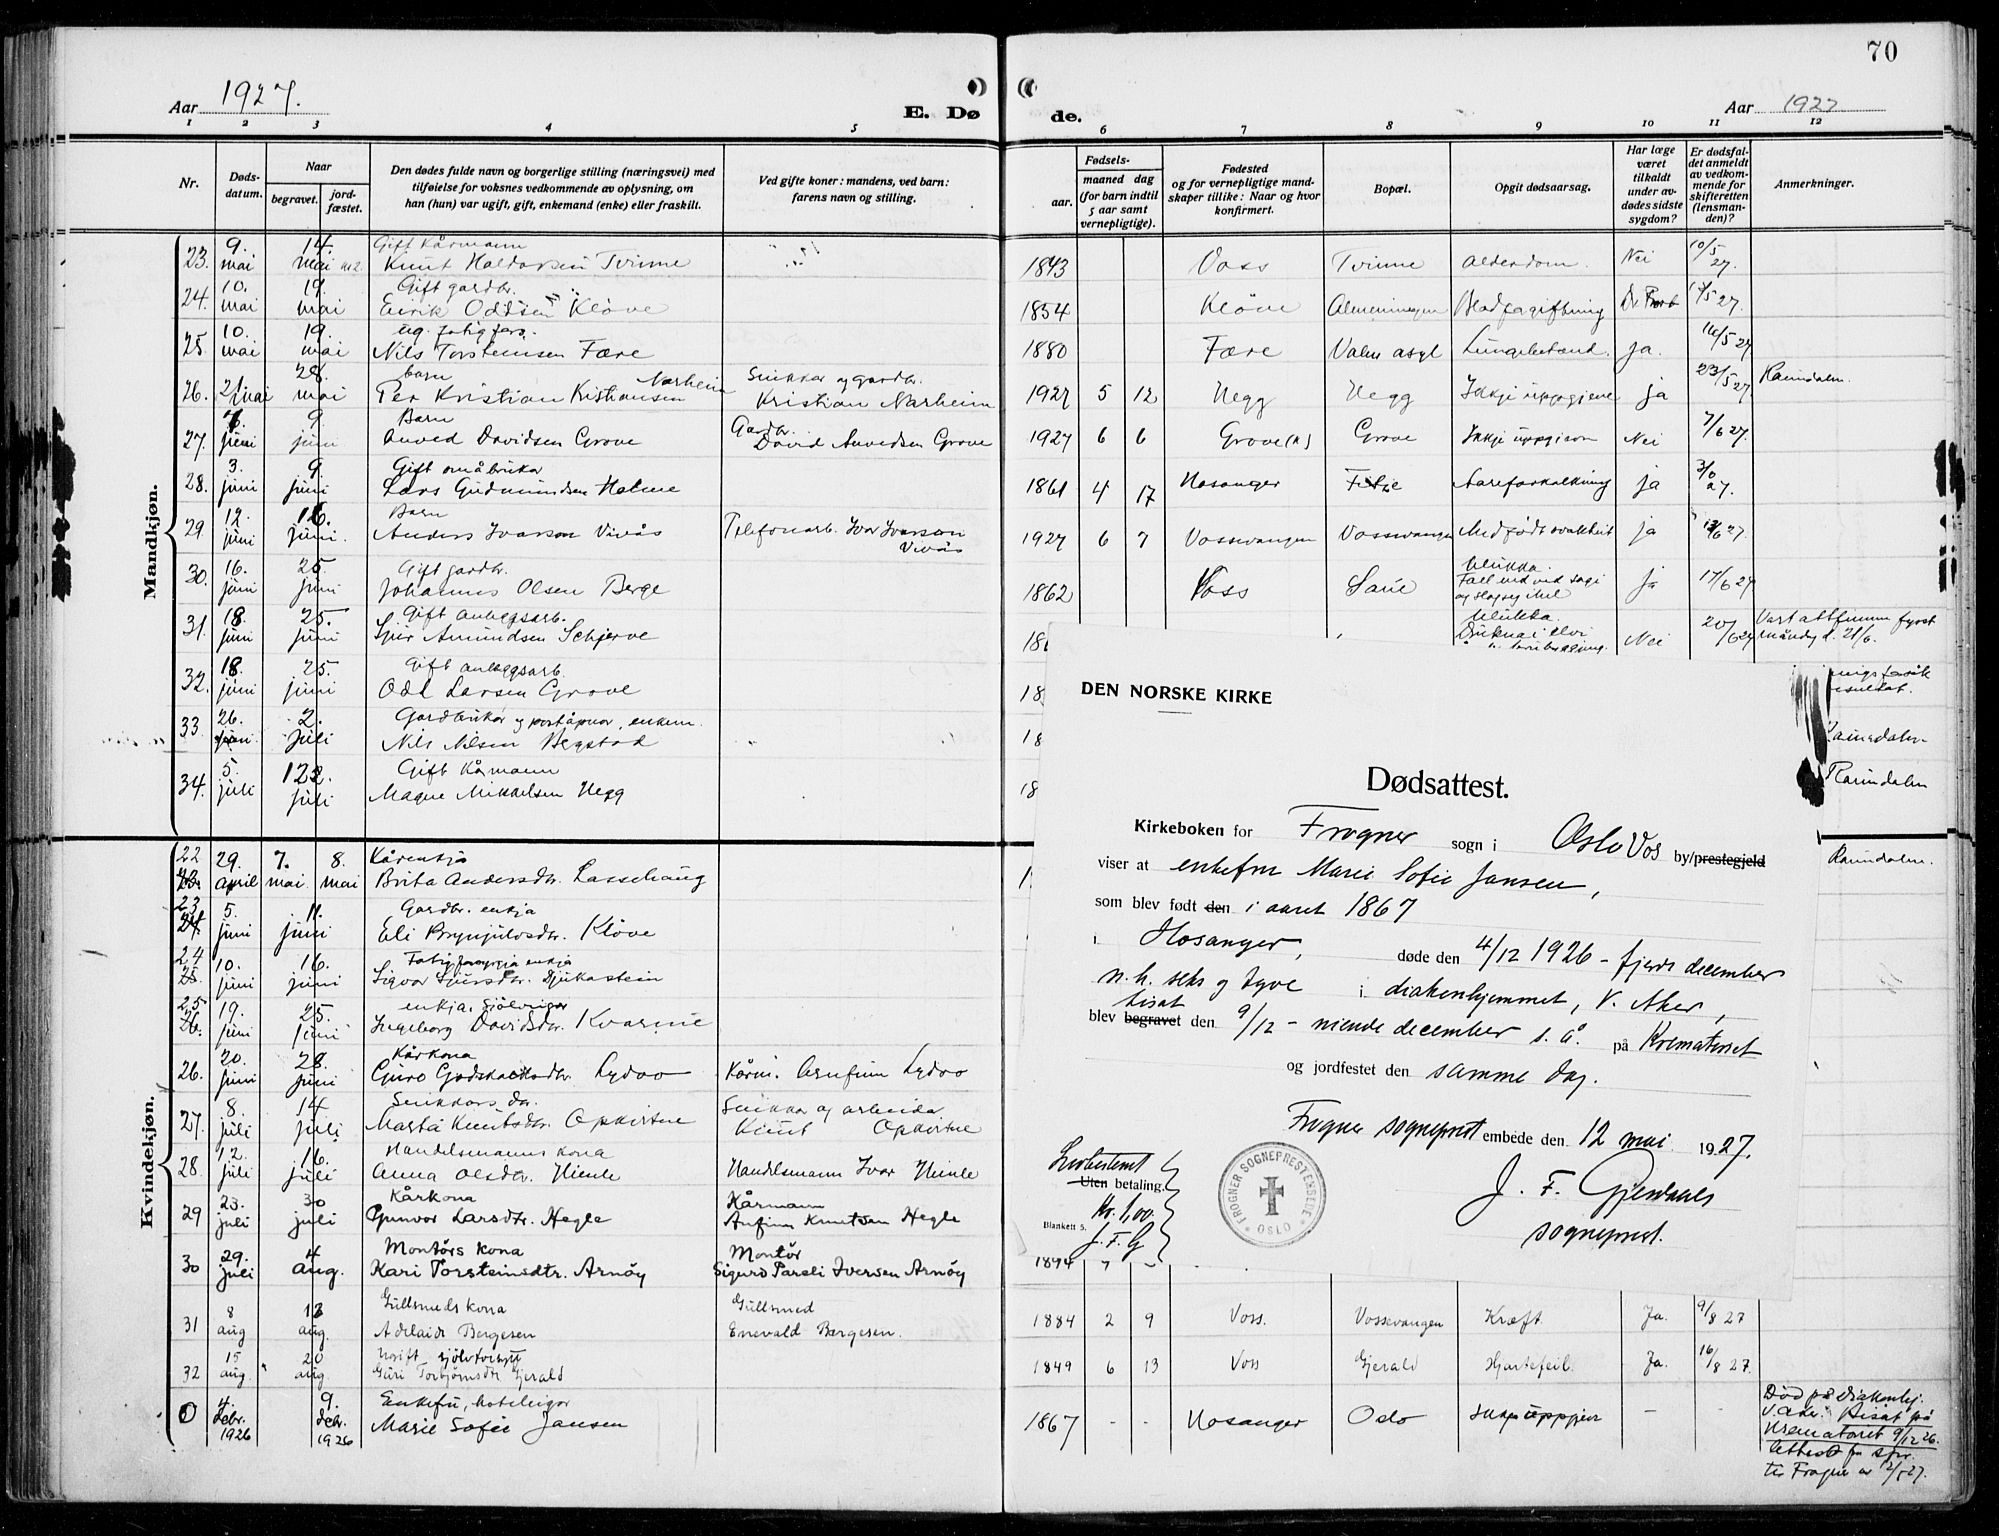 70
Aar 1927.
E. Dø
de.
Aar 1927
1 2 3 4 5 6 7 8 9 10 11 12
Nr.
Døds-
datum.
Naar
begravet.
jord-
fæstet.
Den dødes fulde navn og borgerlige stilling (næringsvei) med
tilføielse for voksnes vedkommende av oplysning, om
han (hun) var ugift, gift, enkemand (enke) eller fraskilt.
Ved gifte koner: mandens, ved barn:
farens navn og stilling.
Fødsels-
aar.
maaned dag
(for barn indtil
5 aar samt
vernepligtige).
Fødested
og for vernepligtige mand-
skaper tillike: Naar og hvor
konfirmert.
Bopæl.
Opgit dødsaarsag.
Har læge
været
tilkaldt
under av-
dødes sidste
sygdom?
Er dødsfal-
det anmeldt
av vedkom-
mende for
skifteretten
(lensman-
den)?
Anmerkninger.
Mandkjøn.
23. 9. mai 14. mai Gift Kårmann
Knut Haldorsen Tvinne 1843 Voss Tvinne Alderdom. Nei 10/5 27.
24. 10. mai 19. mai Gift gardbr.
Eirik Oddsen Kløve 1854 Kløve Blodforgiftning 27.
25. 10. mai 19. mai ug. fatigfors.
Nils Torsteinsen Fære 1880 Fære ja. 27
26. 21 mai 28. mai barn
Per Kristian Kristiansen Nærheim Snikkar og gardbr.
Kristian Nærheim 1927 5 12 Hegg Hegg Ikkje uppgjeve ja 23/5 27. Raundalen.
27. juni 9. juni Barn
Anved Davidsen Grove Gardbr.
David Anvedsen Grove 1927 6 6 Grove Grove Nei 7/6 27.
28. 3. juni 9. juni Gift småbrukar
Lars Gudmundsen Helme 1861 4 17 Hosanger Aareforkalkning ja 27.
29. 12. juni 16. juni. Barn
Anders Ivarson Vivås Telefonarb. Ivar Ivarson
Vivås 1927 6 7 Vossevangen Vossevangen Medfødt svakheit ja 27.
30. 16. juni 25. juni Gift gardbr.
Johannes Olsen Berge 1862 Voss Ulukka. ja 17/6 27
31. 18. juni 25. juni Gift anleggsarb.
Sjur Amundsen Schjerve 18 Ulukka. Nei 20/6 27 Vart attfunnen fyrst
måndag d. 21/6.
32. 18. juni 25. juni Gift anleggsarb.
Odd Larsen Grove 18
33 26. juni. 2. juli Gardbrukar og poståpnar, enkem.
Nils Nilsen Bergstad 18
34. 5. juli 12. juli Gift Kårmann
Magne Mikkelsen Hegg 18 Raundalen
Kvindekjøn.
22 29. april 7. mai 8. mai Kårenkja
Brita Andersdtr. Lassehaug 1 Raundalen.
23 5. juni 11. juni Gardbr. enkja
Eli Brynjulvsdtr. Kløve
24 10. juni 16. juni enkja
Sigvor Sjursdtr. Djukastein
25 19. juni 25. juni enkja
Ingeborg Davidsdtr. Kvarme
26. 20. juni 28. juni Kårkona
Guro Godskalksdtr. Lydvo Kårm. Arnfinn Lydvo
27. 8. juli 14. juli Snikkars dtr.
Marta Knutsdtr. Opkvitne Snikkar og arbeidar
Knut Opkvitne
28. 12. juli 16. juli Handelsmanns kona
Anna Olsdtr. Himle Handelsmann Ivar Himle
29 23. juli 30 juli Kårkona
Gunvor Larsdtr. Hegle Kårmann
Anfinn Knutsen Hegle
30 29. juli 4 aug. Montørs kona
Kari Torsteinsdtr. Arnøy Montør
Sigurd Pareli Iversen Arnøy 1894 7 -
31 8 aug 13 aug. Gullsmeds kona
Adelaide Bergesen Gullsmed
Enevald Bergesen. 1884 2 9 Voss. Vossevangen Kræft. Ja. 9/8 27
32 15 aug. 20 aug. Ugift sjølvforsytt
Guri Torbjørnsdtr Gjerald 1849 6 13 Voss Gjerald Hjartefeil. Ja. 16/8 27.
0 4. debr. 1926 9. debr. 1926 Enkefu, hoteleigar
Marie Sofie Jansen 1867 - - Hosanger Oslo Ikkje uppgjeve - - Død på Diakonhj.
V. Aker. Bisat på
Krematoriet 9/12 26.
Attest fra spr.
til Frogner av 12/5 27.
DEN NORSKE KIRKE
Dødsattest.
Kirkeboken for Frogner sogn i Oslo by/prestegjeld
viser at enkefru Marie Sofie Jansen,
som blev født den i aaret 1867
i Hosanger, døde den 4/12 1926 – fjerde december
n. h. seks og tyve i diakonhjemmet, V. Aker,
bisat
blev begravet den 9/12 – niende december s. å. på Krematoriet
og jordfestet den samme dag.
Frogner sogneprestembede den 12 mai 1927.
J. F. Gjerdaker
sogneprest.
Uten betaling.
Kr. 1,00.
Blankett 5.
J. F. G
FROGNER SOGNEPRESTEMBEDE
OSLO